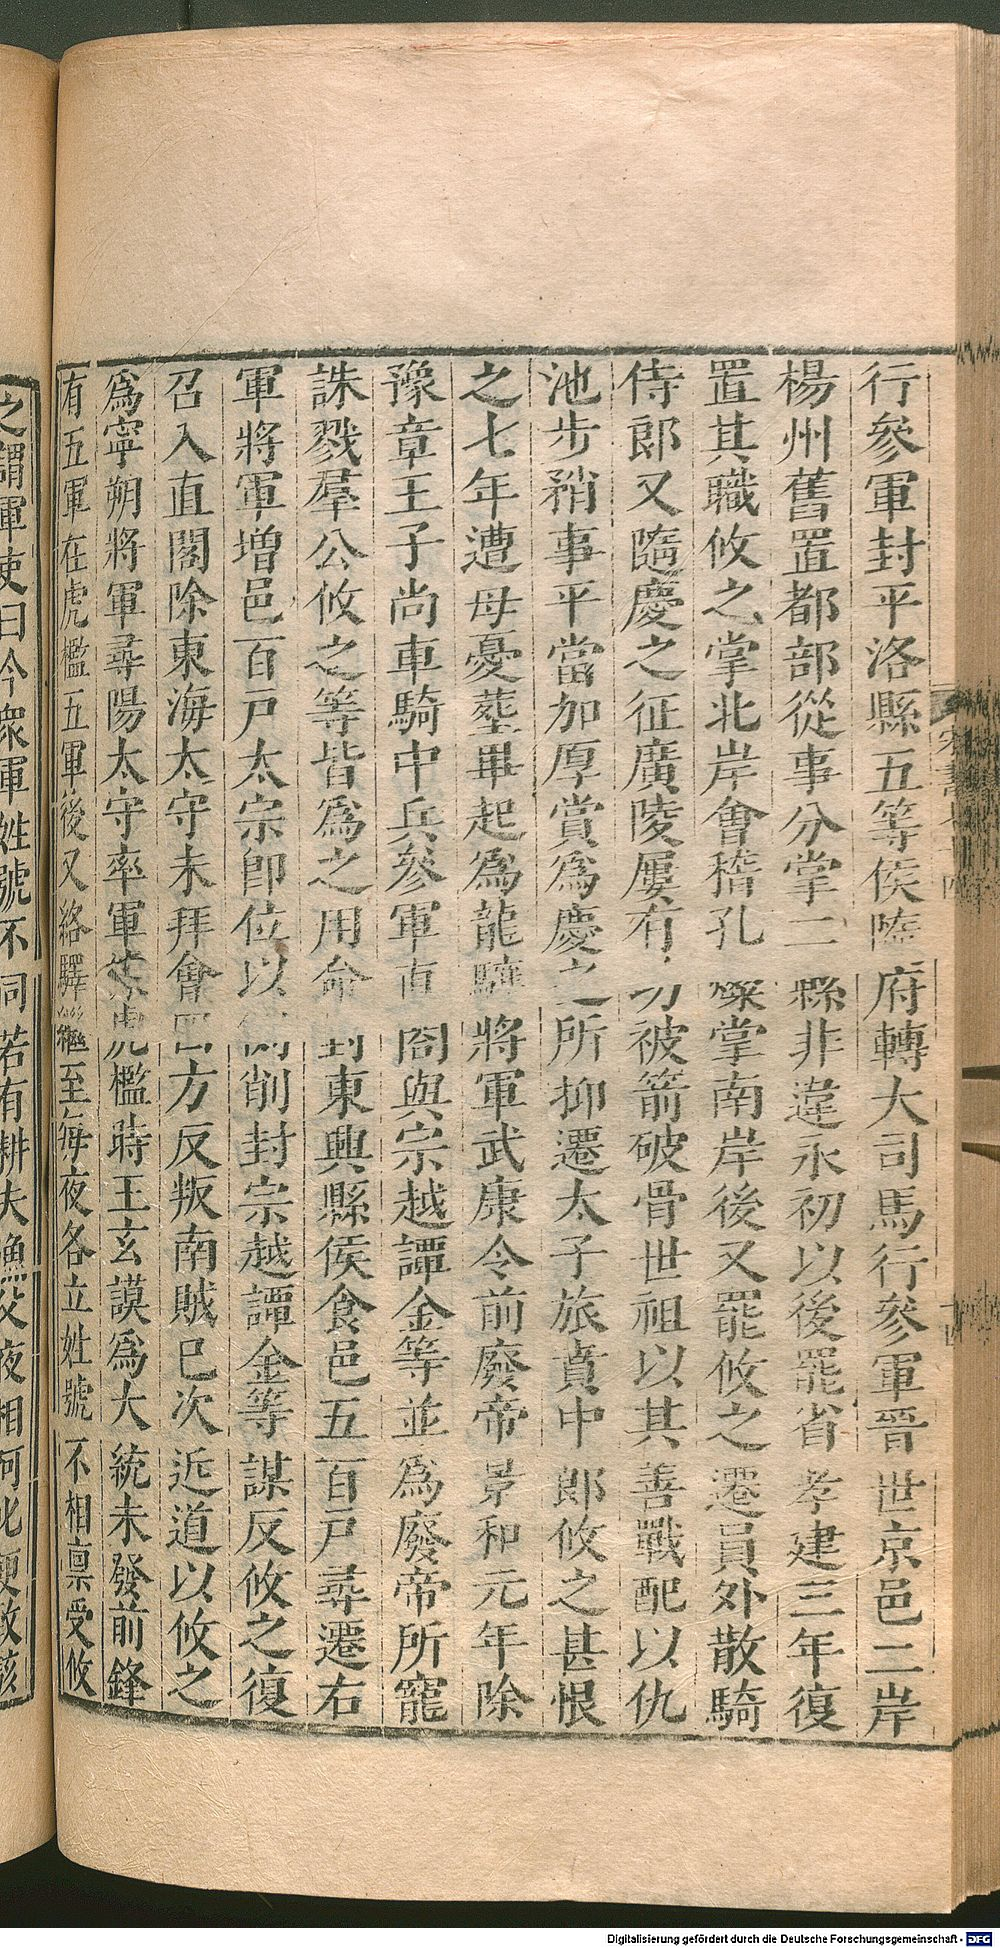 行參軍封平洛縣五等侯隨府轉大司馬行參軍晉世京邑二岸
楊州舊置都部從事分掌二縣非違永初以後罷省孝建三年復
置其職攸之掌北岸會稽孔璪掌南岸後又罷攸之遷員外散騎
侍郎又隨慶之征廣陵屢有功被箭破骨世祖以其善戰配以仇
池步矟事平當加厚賞爲慶之所抑遷太子旅賁中郎攸之甚恨
之七年遭母憂葬畢起爲龍驤將軍武康令前廢帝景和元年除
豫章王子尚車騎中兵參軍直閤與宗越譚金等並爲廢帝所寵
誅戮羣公攸之等皆爲之用命封東興縣侯食邑五百戸尋遷右
軍將軍增邑百戸太宗即位以例削封宗越譚金等謀反攸之復
召入直閣除東海太守未拜會四方反叛南賊已次近道以攸之
爲寧朔將軍尋陽太守率軍據虎檻時王玄謨爲大統未發前鋒
有五軍在虎檻五軍後又絡驛繼至每夜各立姓號不相禀受攸
之謂軍吏曰今衆軍姓號不同若有耕夫漁父夜相呵叱便致駭
Digitalisierung gefördert durch die Deutsche Forschungsgemeinschaft - DFG